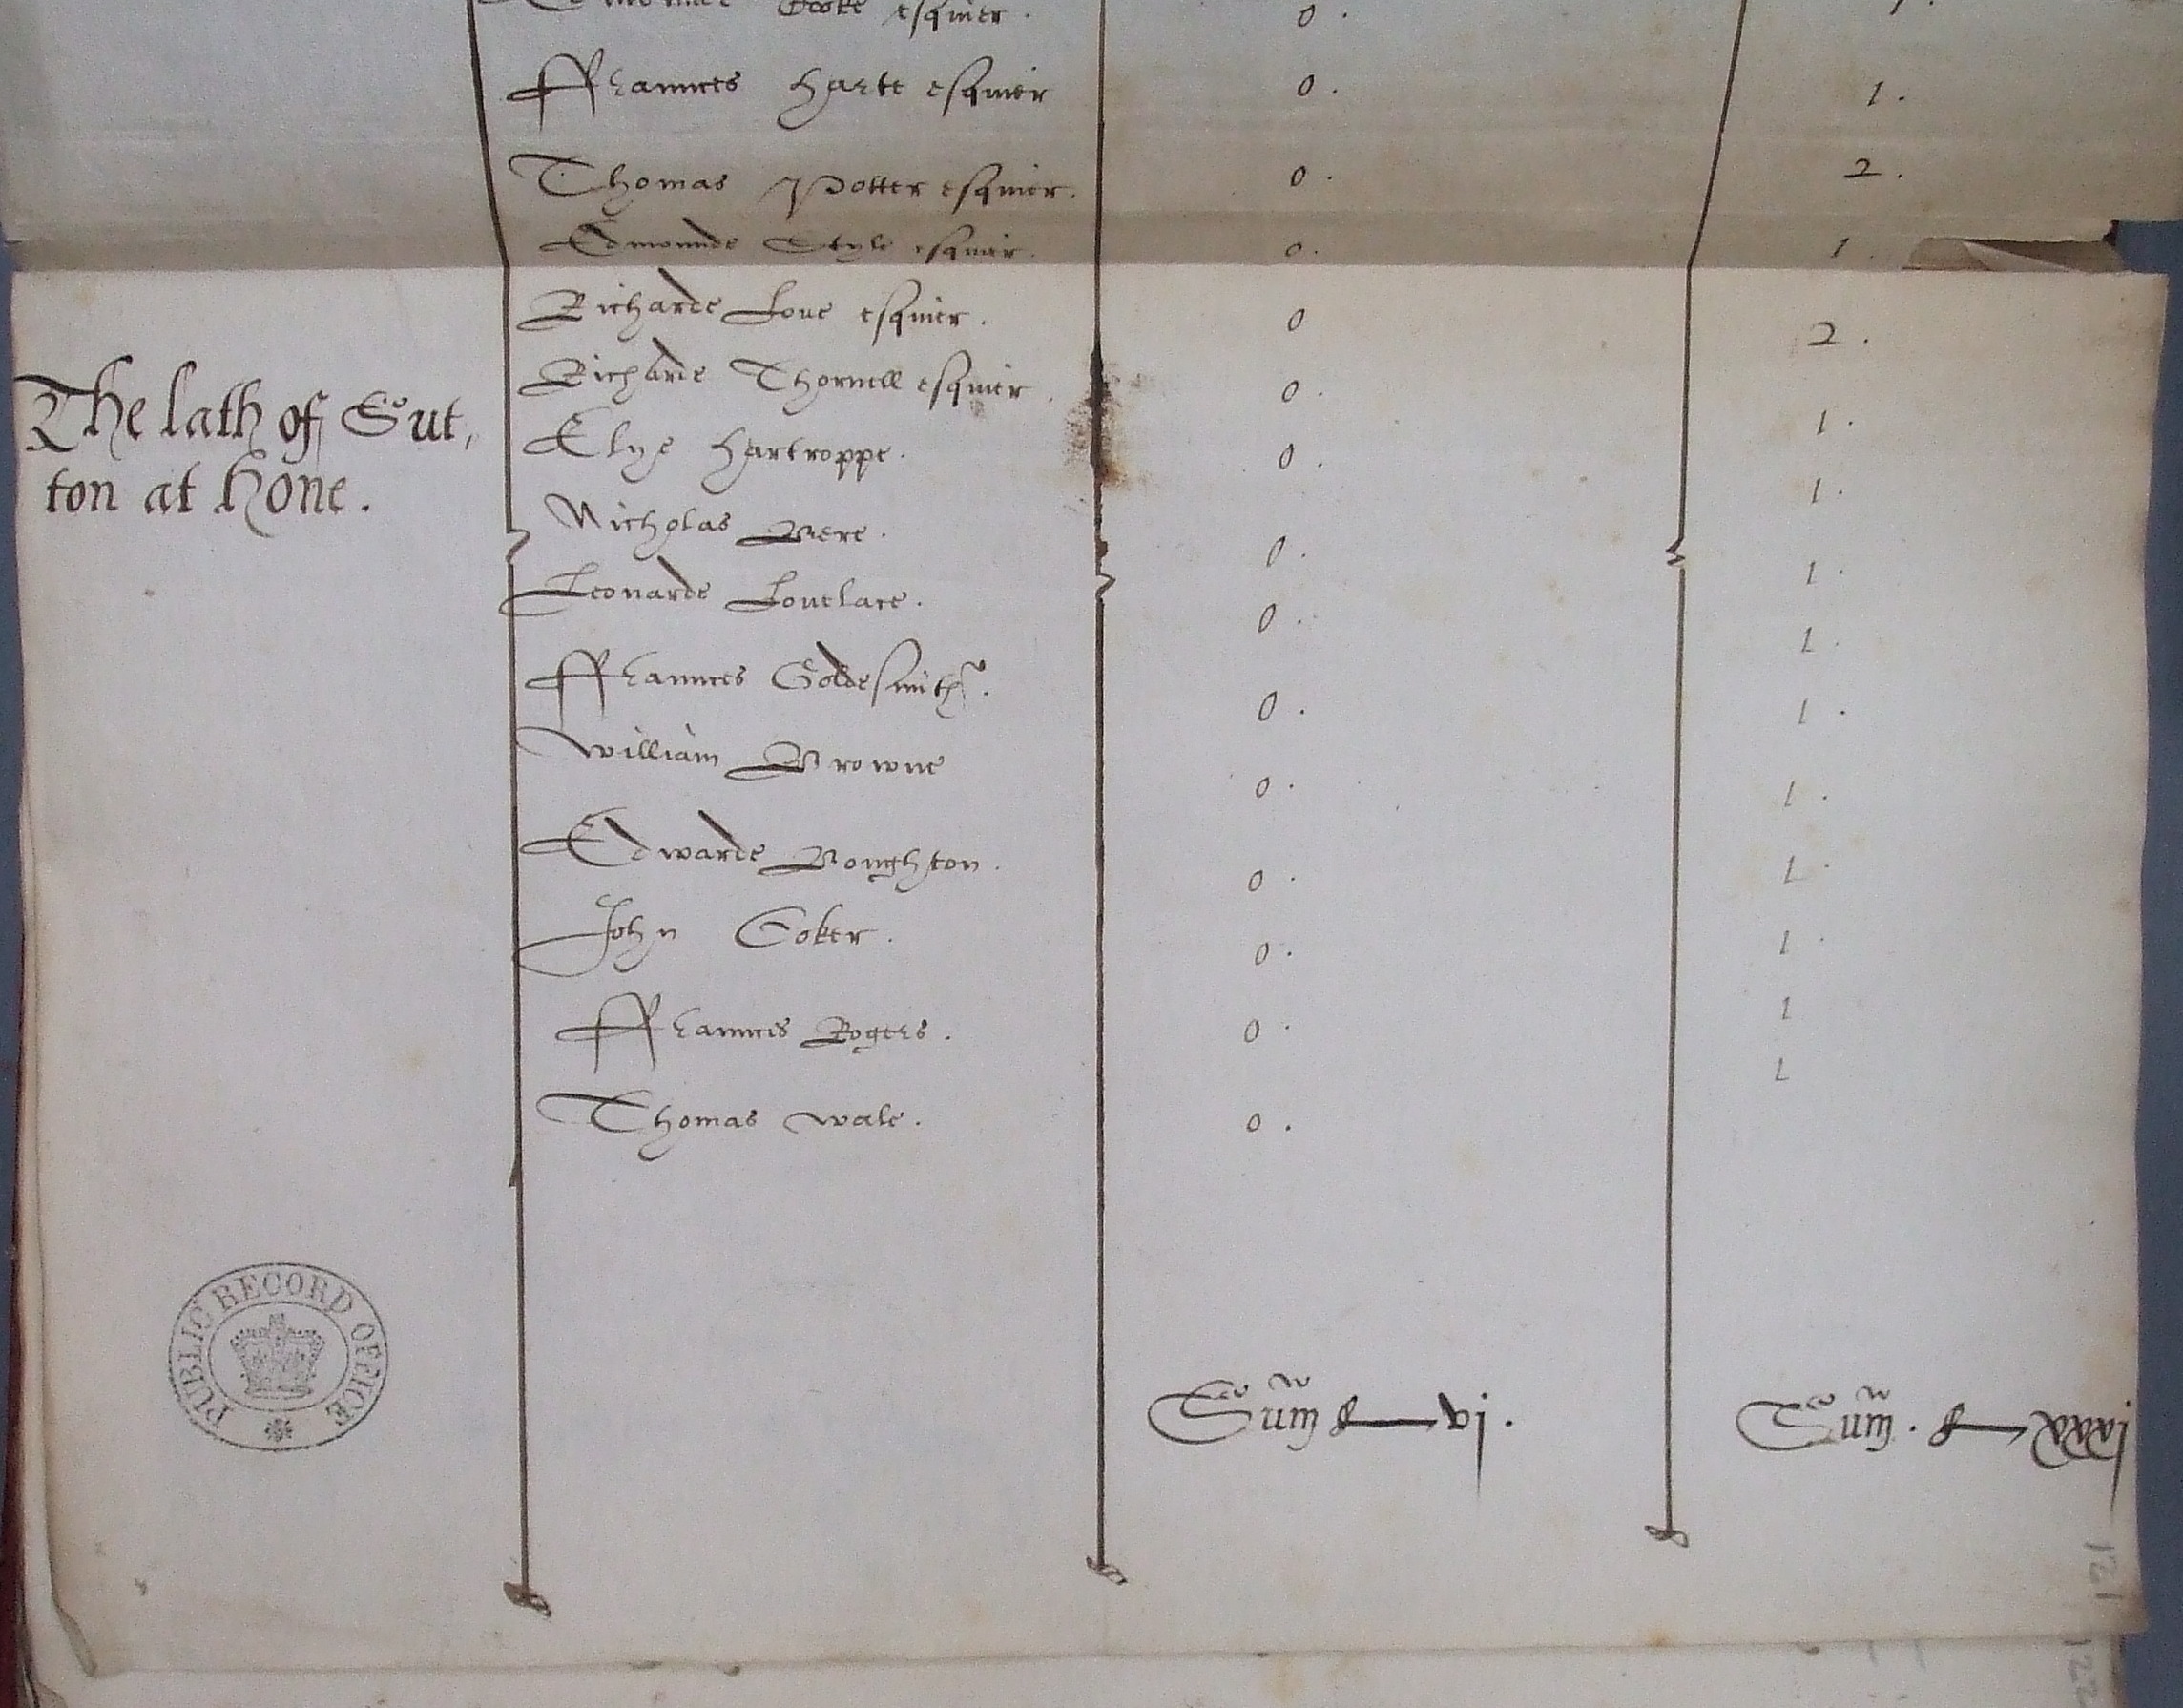 Cooke esquier . 0 .
ffraunces Harte esquier 0 . 1 .
Thomas Potter esquier . 0 . 2 .
Edmounde Style esquier . 0 . 1 .
Richarde Loue esquier . 0 2 .
Richarde Thornell esquier . 0 . 1 .
The lath of Sut,
ton at hone .
Elye Hartroppe . 0 . 1 .
Nicholas Bere . 0 . 1 .
Leonarde Louelace . 0 . 1 .
ffraunces Goldesmith . 0 . 1 .
william Browne 0 . 1 .
Edwarde Boughton . 0 . 1 .
John Coker . 0 . 1 .
ffraunces Rogers . 0 . 1
Thomas wale . 0 . 1
PUBLIC RECORD OFFICE
Sum̃ vj .
Sum̃ . xxxvj
121
122